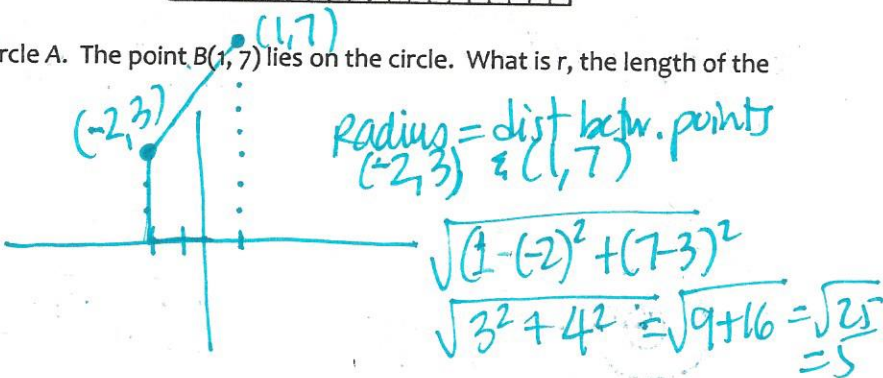 (1,7)
rcle A. The point B(1, 7) lies on the circle. What is r, the length of the
(-2,3)
Radius = dist betw. points
(-2,3) & (1,7)
√(1-(-2)² +(7-3)²
√3² + 4² = √9+16 = √25
= 5